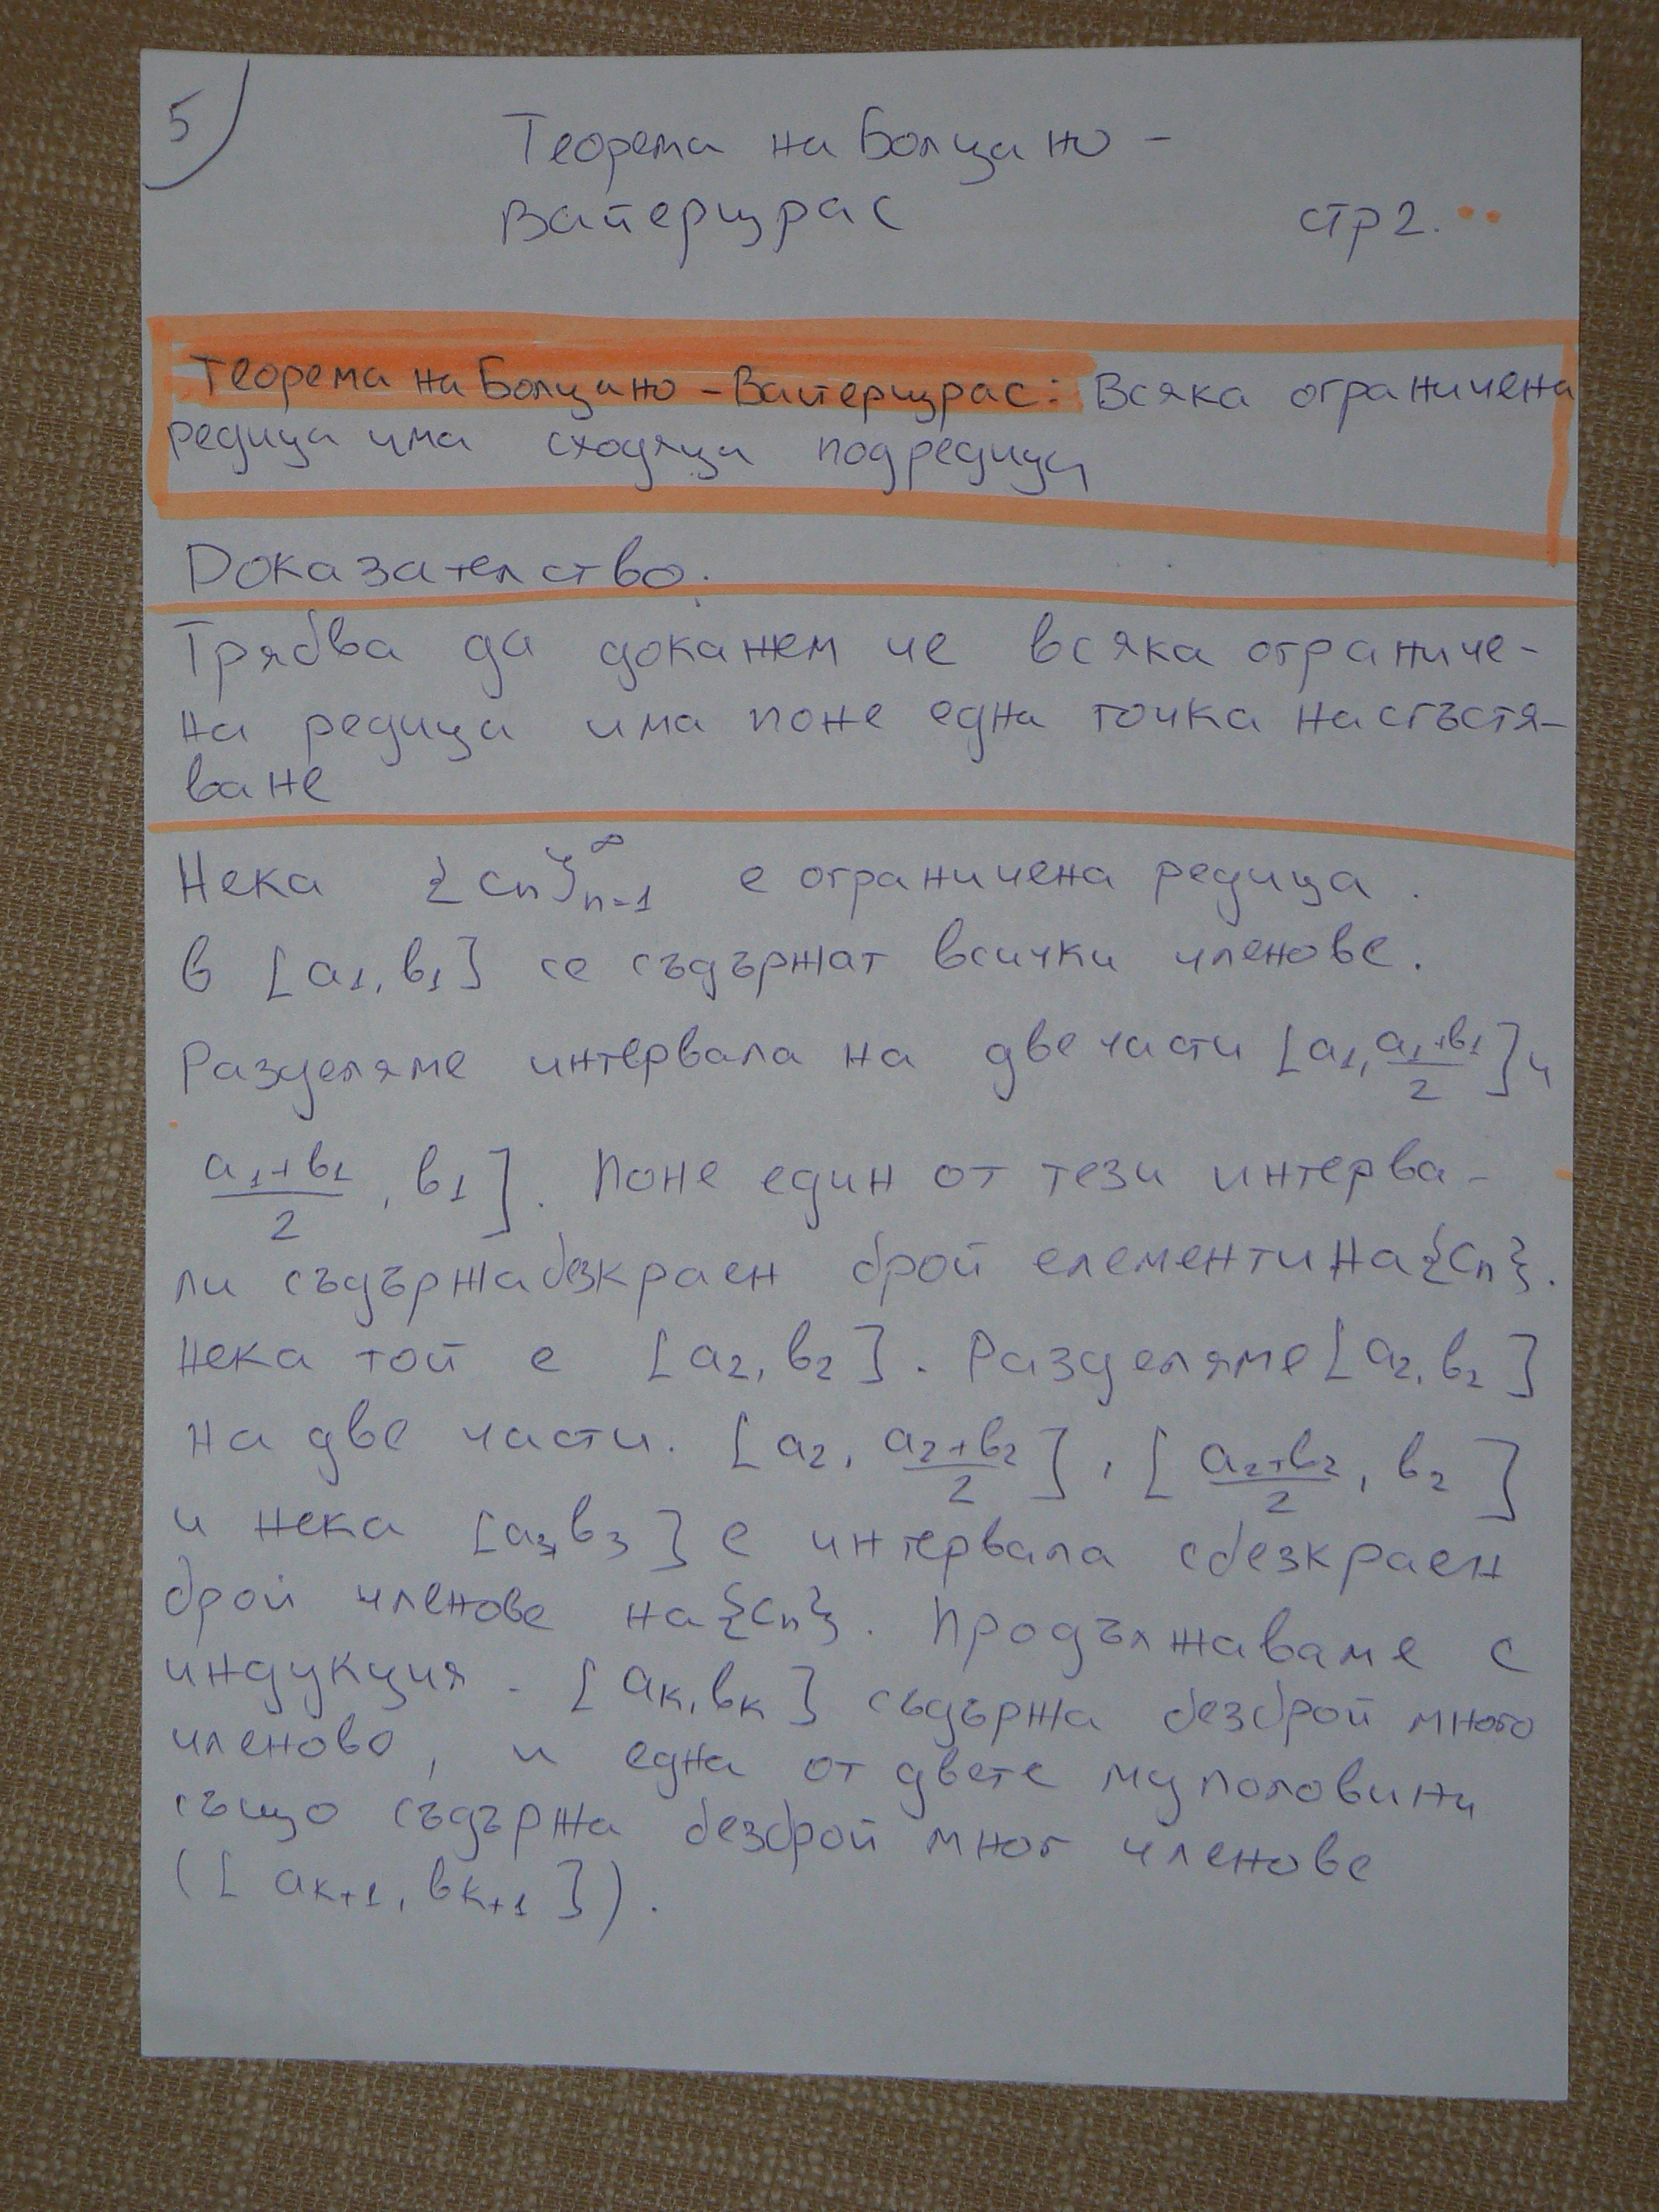 5)
Теорема на Болцано -
Вайерщрас
стр 2.
Теорема на Болцано - Вайерщрас: Всяка ограничена
редица има сходяща подредица
Доказателство.
Трябва да докажем че всяка ограниче-
на редица има поне една точка на сгъстя-
ване
Нека {cn}∞n=1 е ограничена редица.
В [a1, b1] се съдържат всички членове.
Разделяме интервала на две части [a1, (a1+b1)/2] и
(a1+b1)/2, b1]. Поне един от тези интерва-
ли съдържа безкраен брой елементи на {cn}.
Нека той е [a2, b2]. Разделяме [a2, b2]
на две части. [a2, (a2+b2)/2], [(a2+b2)/2, b2]
и нека [a3, b3] е интервала с безкраен
брой членове на {cn}. Продължаваме с
индукция. [ak, bk] съдържа безброй много
членове, и една от двете му половини
също съдържа безброй мног членове
([ak+1, bk+1]).